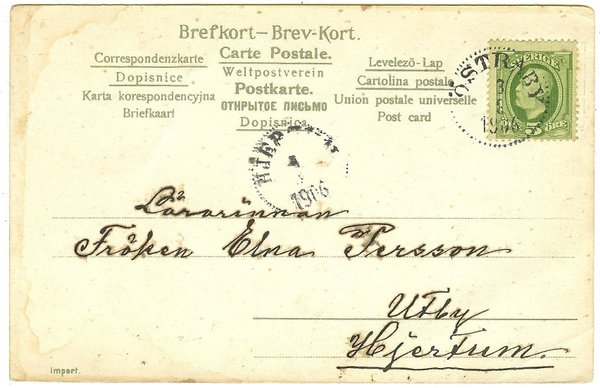 Brefkort—Brev-Kort.
Correspondenzkarte
Dopisnice
Karta korespondencyjna
Briefkaart
Carte Postale.
Weltpostverein
Postkarte.
ОТКРЫТОЕ ПИСЬМО
Dopisnica
Levelező-Lap
Cartolina postale
Union postale universelle
Post card
SVERIGE
5 ÖRE
1906
1906
Lärarinnan
Fröken Elna Persson
Utby
Hjertum.
Import.